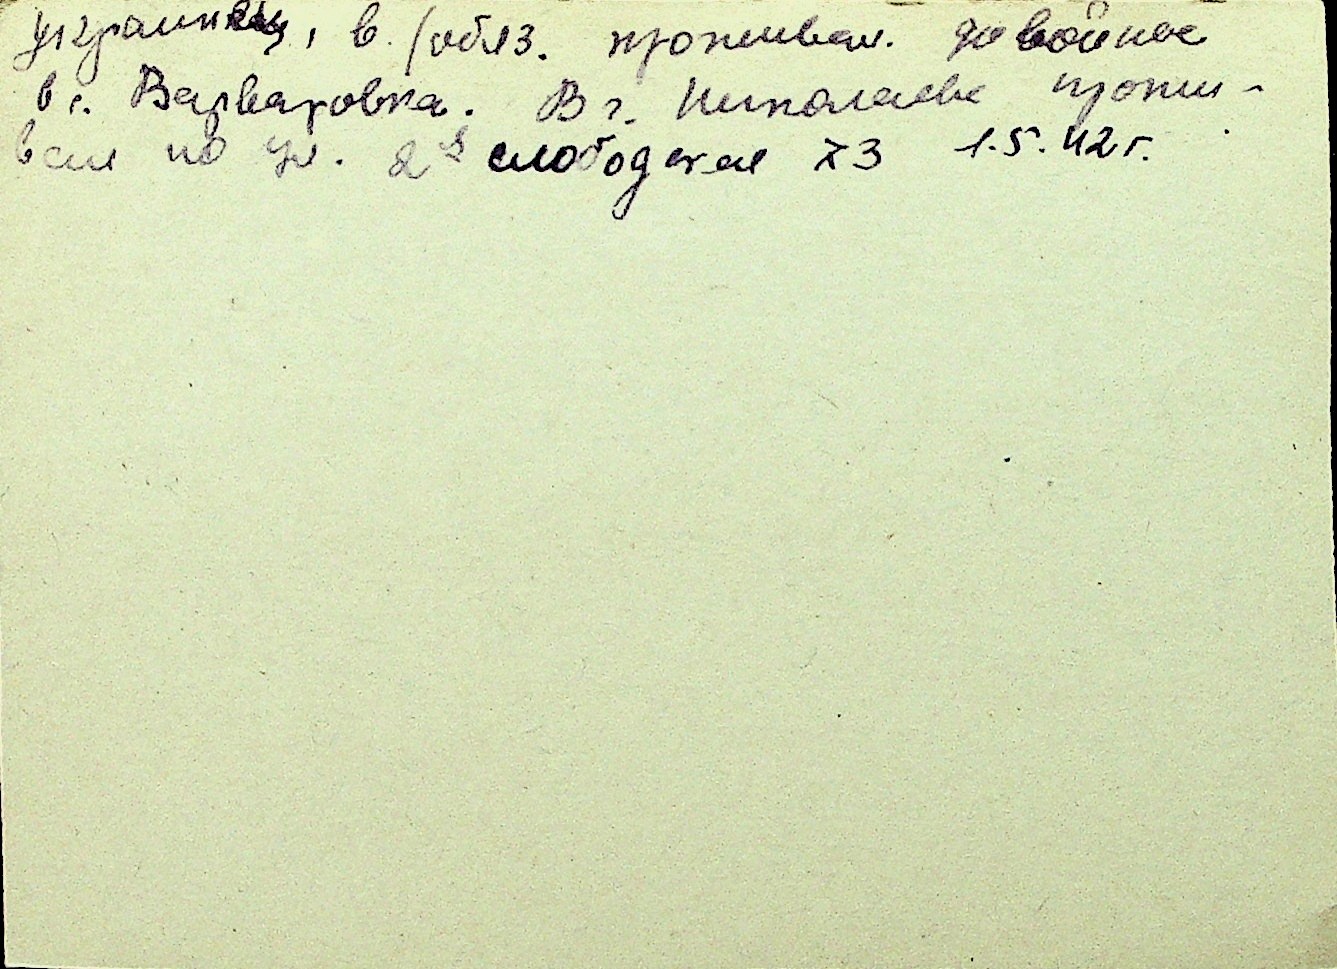 украинец, в/обяз. проживал. до войны
в с. Варваровка. В г. Николаеве прожи-
вал по ул. 2я слободская 73 1.5.42 г.